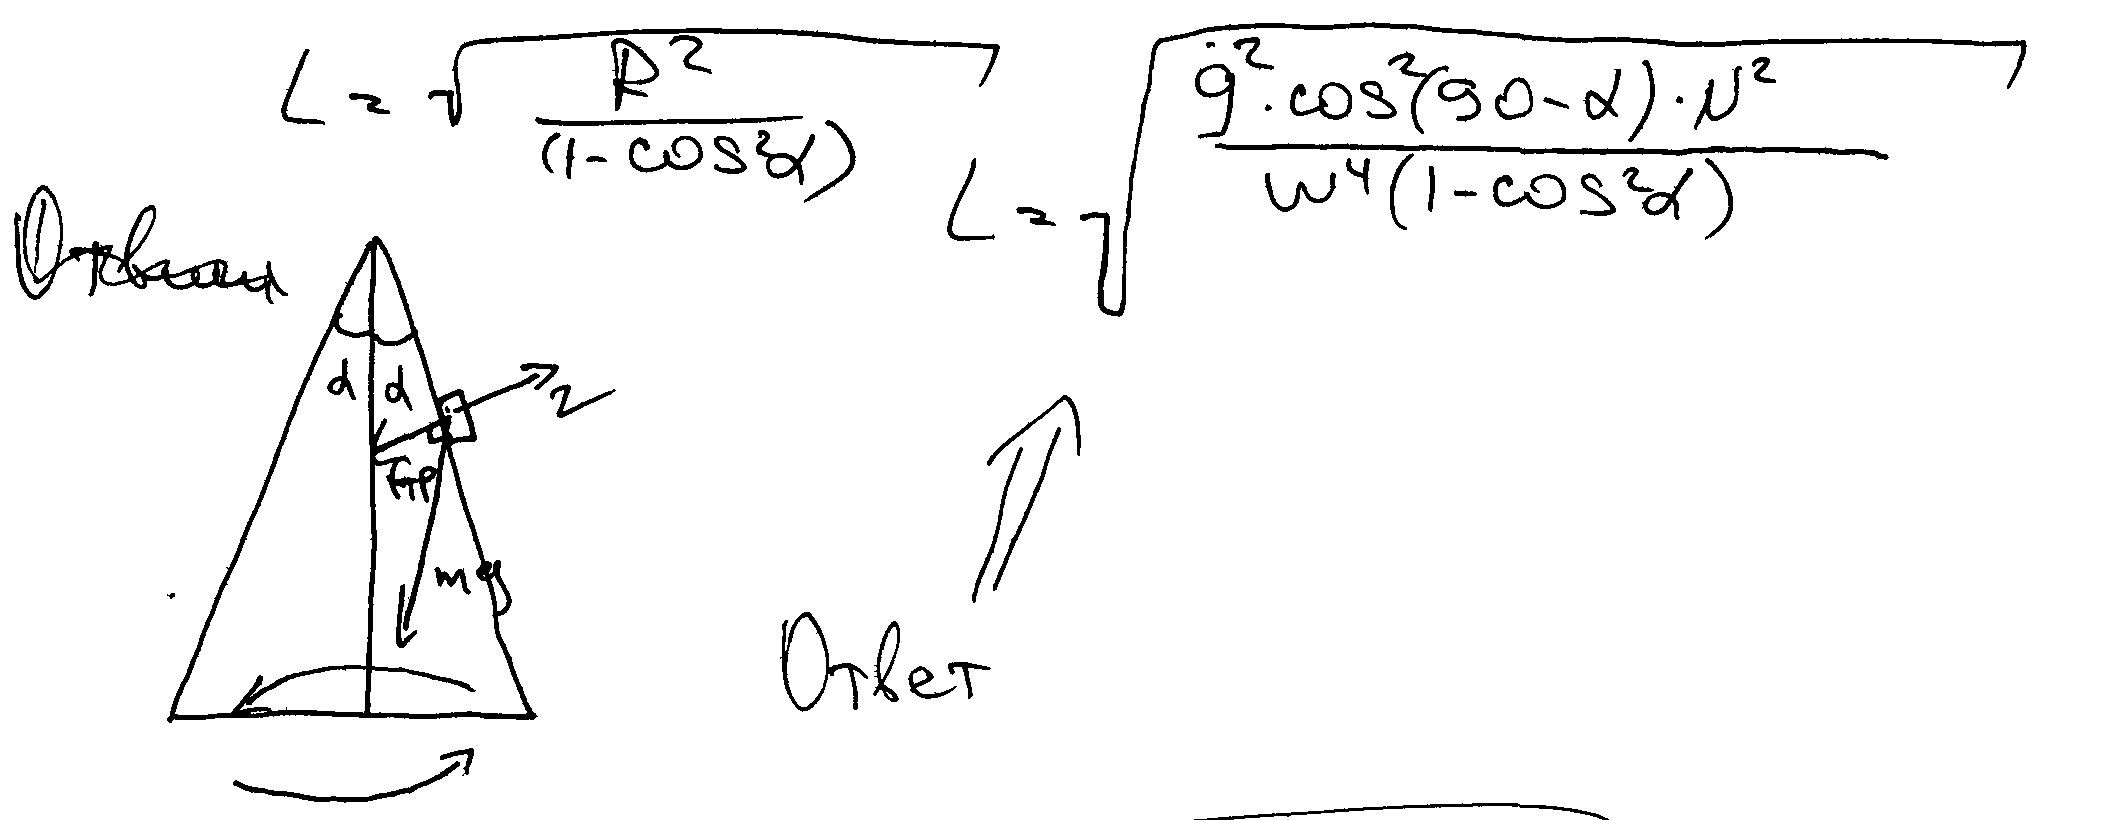 L = √(R² / (1-cos²α))
L = √(g²·cos²(90-α)·μ² / (w⁴(1-cos²α)))
α α
N
Fтр
mg
Ответ